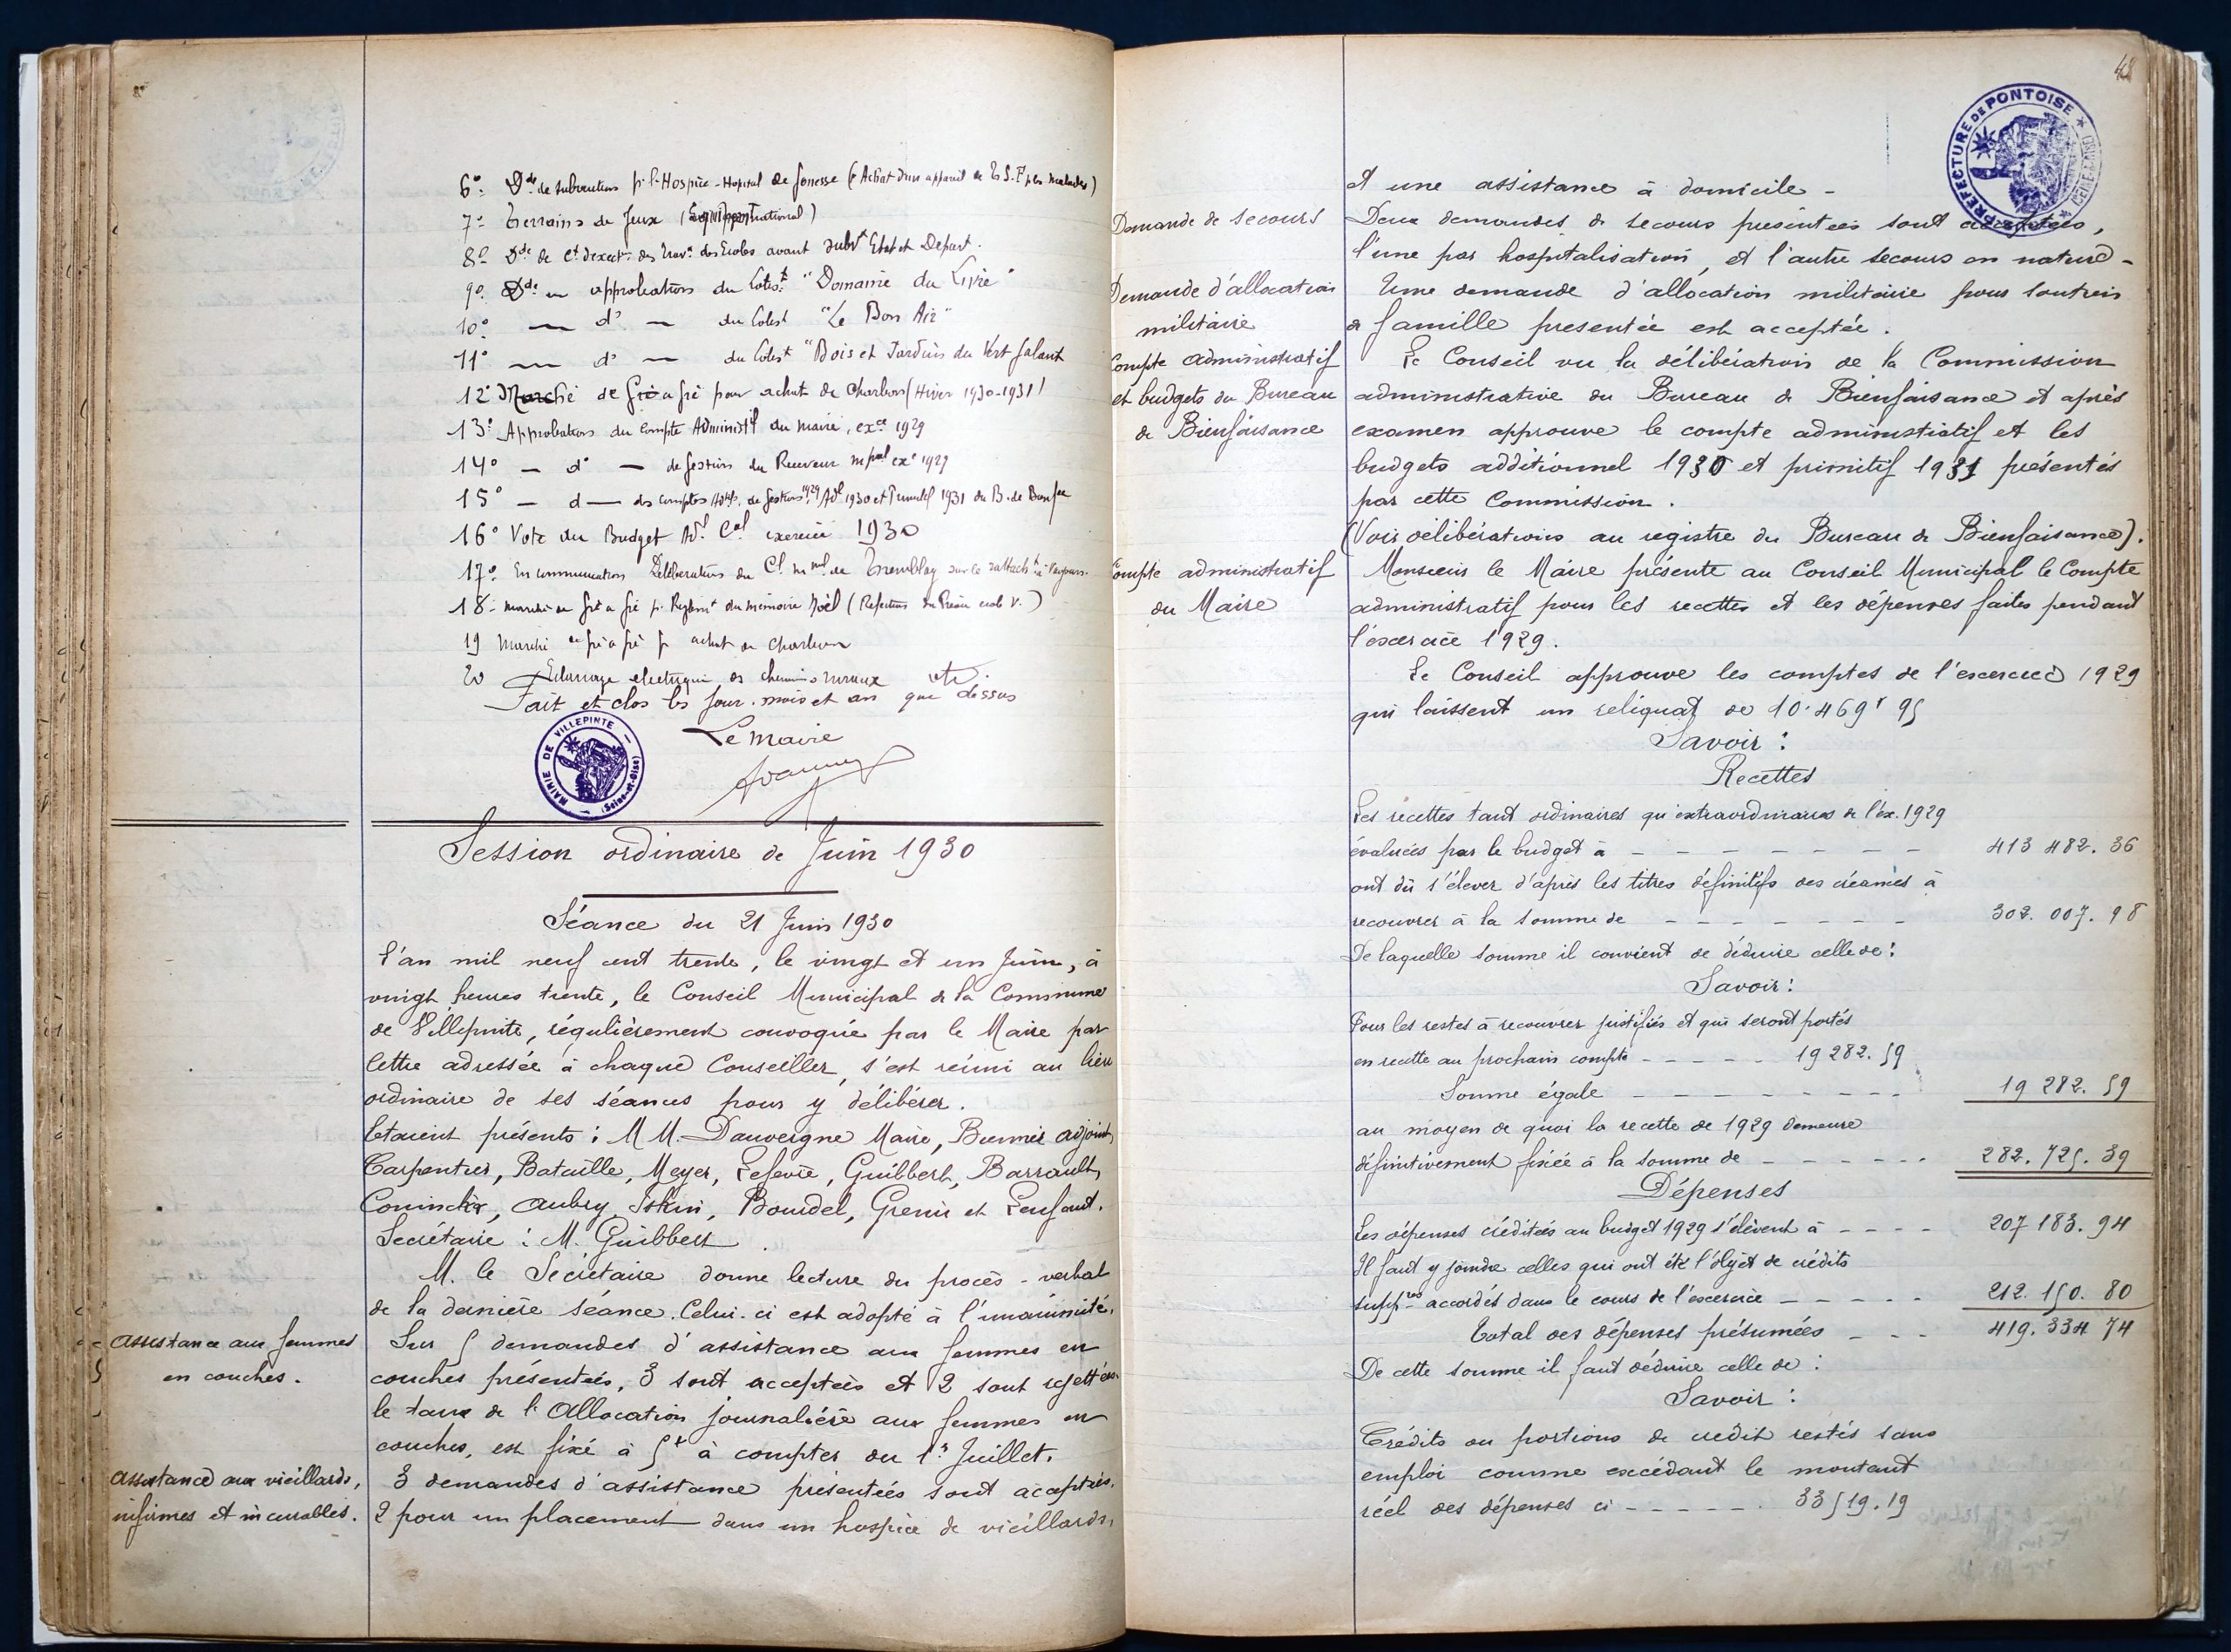 6° Dde de subvention pr l'Hospice-Hopital de Gonesse (pr Achat d'un appareil de T.S.F pr les malades)
7° Terrains de Jeux (national)
8° Dde de des Travx des Ecoles avant subvt Etat et Depart.
9° Dde en approbation du Lotist "Domaine du"
10° — do — du Lotist "Le Bon Air"
11° — do — du Lotist "Bois et Jardins du Vert Galant
12° Marché de Gré à Gré pour achat de Charbon (Hiver 1930-1931)
13° Approbation du Compte Administif du Maire, exce 1929
14° — do — de Gestion du Receveur mpal exe 1929
15° — d — des comptes de Gestion 1929 Adl 1930 et Primitif 1931 du B. de Bienfce
16° Vote du Budget Adl Cal exercice 1930
17° En communication Délibération du Cl mpal de Tremblay sur le rattacht à
18° Marché de Gré à Gré pr Reglemt du mémoire Noël (Refection du Préau)
19 Marché de gré à gré pr achat de Charbon
20 Eclairage electrique des chemins ruraux etc
Fait et clos les jour, mois et an que dessus
Le Maire
MAIRIE DE VILLEPINTE
(Seine-et-Oise)
Session ordinaire de Juin 1930
Séance du 21 Juin 1930
L'an mil neuf cent trente, le vingt et un Juin, à
vingt heures trente, le Conseil Municipal de la Commune
de Villepinte, régulièrement convoqué par le Maire par
lettre adressée à chaque Conseiller, s'est réuni au lieu
ordinaire de ses séances pour y délibérer.
Etaient présents : M M. Dauvergne Maire, adjoint,
Carpentier, Bataille, Meyer, Lefevre, Guibbert, Barrault,
Aubry, Bourdel, Grenier et Lenfant.
Secrétaire : M. Guibbert.
M. le Secrétaire donne lecture du procès-verbal
de la dernière séance. Celui-ci est adopté à l'unanimité.
Assistance aux femmes
en couches.
Sur 5 demandes d'assistance aux femmes en
couches présentées, 3 sont acceptées et 2 sont rejettées.
le taux de l'Allocation journalière aux femmes en
couches, est fixé à 5f à compter du 1er Juillet.
Assistance aux vieillards,
infirmes et incurables.
3 demandes d'assistance présentées sont acceptées.
2 pour un placement dans un hospice de vieillards,
48
PREFECTURE DE PONTOISE
et une assistance à domicile -
Demande de secours
Deux demandes de secours présentées sont acceptées,
l'une par hospitalisation, et l'autre secours en nature -
Demande d'allocation
militaire
Une demande d'allocation militaire pour soutien
de famille présentée est acceptée.
Compte Administratif
et budgets du Bureau
de Bienfaisance
Le Conseil vu la délibération de la Commission
administrative du Bureau de Bienfaisance et après
examen approuve le compte administratif et les
budgets additionnel 1930 et primitif 1931 présentés
par cette Commission.
(Voir délibérations au registre du Bureau de Bienfaisance).
Compte administratif
du Maire
Monsieur le Maire présente au Conseil Municipal le Compte
administratif pour les recettes et les dépenses faites pendant
l'exercice 1929.
Le Conseil approuve les comptes de l'exercice 1929
qui laissent un reliquat de 10.469f 95
Savoir :
Recettes
Les recettes tant ordinaires qu'extraordinaires de l'ex. 1929
évaluées par le budget à - - - - - - - 413 482. 36
ont dû s'élever d'après les titres définitifs des créances à
recouvrer à la somme de - - - - - - - 302. 007. 98
De laquelle somme il convient de déduire celle de :
Savoir :
Pour les restes à recouvrer justifiés et qui seront portés
en recette au prochain compte - - - - - 19 282. 59
Somme égale - - - - - - - - 19 282. 59
au moyen de quoi la recette de 1929 demeure
définitivement fixée à la somme de - - - - - - 282. 725. 39
Dépenses
Les dépenses créditées au budget 1929 s'élèvent à - - - - 207 183. 94
Il faut y joindre celles qui ont été l'objet de crédits
suppres accordés dans le cours de l'exercice - - - - - 212. 150. 80
Total des dépenses présumées - - - 419. 334 74
De cette somme il faut déduire celle de :
Savoir :
Crédits ou portions de crédit restés sans
emploi comme excédant le montant
réel des dépenses ci - - - - - 33 519. 19